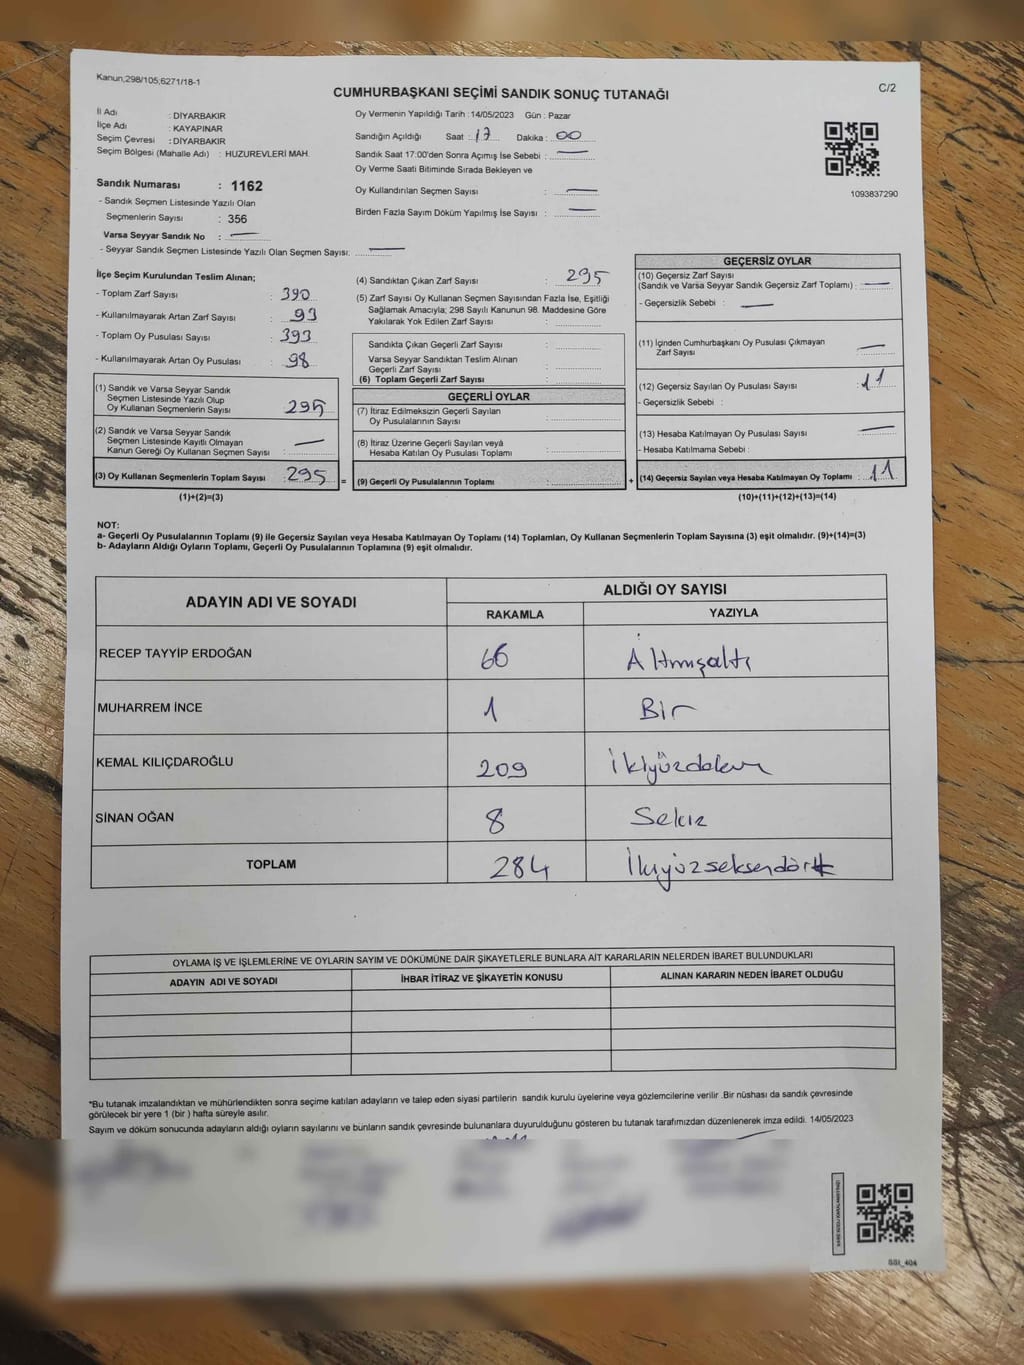 Kanun,298/105,6271/18-1
CUMHURBAŞKANI SEÇİMİ SANDIK SONUÇ TUTANAĞI
C/2
İl Adı : DİYARBAKIR
İlçe Adı : KAYAPINAR
Seçim Çevresi : DİYARBAKIR
Seçim Bölgesi (Mahalle Adı) : HUZUREVLERİ MAH.
Sandık Numarası : 1162
- Sandık Seçmen Listesinde Yazılı Olan
Seçmenlerin Sayısı : 356
Varsa Seyyar Sandık No : —
- Seyyar Sandık Seçmen Listesinde Yazılı Olan Seçmen Sayısı: —
Oy Vermenin Yapıldığı Tarih : 14/05/2023 Gün : Pazar
Sandığın Açıldığı Saat : 17 Dakika : 00
Sandık Saat 17:00'den Sonra Açımış İse Sebebi : —
Oy Verme Saati Bitiminde Sırada Bekleyen ve
Oy Kullandırılan Seçmen Sayısı : —
Birden Fazla Sayım Döküm Yapılmış İse Sayısı : —
1093837290
İlçe Seçim Kurulundan Teslim Alınan;
- Toplam Zarf Sayısı : 390
- Kullanılmayarak Artan Zarf Sayısı : 93
- Toplam Oy Pusulası Sayısı : 393
- Kullanılmayarak Artan Oy Pusulası : 98
(1) Sandık ve Varsa Seyyar Sandık
Seçmen Listesinde Yazılı Olup
Oy Kullanan Seçmenlerin Sayısı : 295
(2) Sandık ve Varsa Seyyar Sandık
Seçmen Listesinde Kayıtlı Olmayan
Kanun Gereği Oy Kullanan Seçmen Sayısı : —
(3) Oy Kullanan Seçmenlerin Toplam Sayısı : 295
(1)+(2)=(3)
(4) Sandıktan Çıkan Zarf Sayısı : 295
(5) Zarf Sayısı Oy Kullanan Seçmen Sayısından Fazla İse, Eşitliği
Sağlamak Amacıyla; 298 Sayılı Kanunun 98. Maddesine Göre
Yakılarak Yok Edilen Zarf Sayısı :
Sandıkta Çıkan Geçerli Zarf Sayısı :
Varsa Seyyar Sandıktan Teslim Alınan
Geçerli Zarf Sayısı :
(6) Toplam Geçerli Zarf Sayısı :
GEÇERLİ OYLAR
(7) İtiraz Edilmeksizin Geçerli Sayılan
Oy Pusulalarının Sayısı :
(8) İtiraz Üzerine Geçerli Sayılan veya
Hesaba Katılan Oy Pusulası Toplamı :
= (9) Geçerli Oy Pusulalarının Toplamı : +
GEÇERSİZ OYLAR
(10) Geçersiz Zarf Sayısı
(Sandık ve Varsa Seyyar Sandık Geçersiz Zarf Toplamı) : —
- Geçersizlik Sebebi : —
(11) İçinden Cumhurbaşkanı Oy Pusulası Çıkmayan
Zarf Sayısı : —
(12) Geçersiz Sayılan Oy Pusulası Sayısı : 11
- Geçersizlik Sebebi :
(13) Hesaba Katılmayan Oy Pusulası Sayısı : —
- Hesaba Katılmama Sebebi :
(14) Geçersiz Sayılan veya Hesaba Katılmayan Oy Toplamı : 11
(10)+(11)+(12)+(13)=(14)
NOT:
a- Geçerli Oy Pusulalarının Toplamı (9) ile Geçersiz Sayılan veya Hesaba Katılmayan Oy Toplamı (14) Toplamları, Oy Kullanan Seçmenlerin Toplam Sayısına (3) eşit olmalıdır. (9)+(14)=(3)
b- Adayların Aldığı Oyların Toplamı, Geçerli Oy Pusulalarının Toplamına (9) eşit olmalıdır.
ADAYIN ADI VE SOYADI
ALDIĞI OY SAYISI
RAKAMLA YAZIYLA
RECEP TAYYİP ERDOĞAN 66 Altmışaltı
MUHARREM İNCE 1 Bir
KEMAL KILIÇDAROĞLU 209 İkiyüzdokuz
SİNAN OĞAN 8 Sekiz
TOPLAM 284 İkiyüzseksendört
OYLAMA İŞ VE İŞLEMLERİNE VE OYLARIN SAYIM VE DÖKÜMÜNE DAİR ŞİKAYETLERLE BUNLARA AİT KARARLARIN NELERDEN İBARET BULUNDUKLARI
ADAYIN ADI VE SOYADI İHBAR İTİRAZ VE ŞİKAYETİN KONUSU ALINAN KARARIN NEDEN İBARET OLDUĞU
*Bu tutanak imzalandıktan ve mühürlendikten sonra seçime katılan adayların ve talep eden siyasi partilerin sandık kurulu üyelerine veya gözlemcilerine verilir .Bir nüshası da sandık çevresinde
görülecek bir yere 1 (bir ) hafta süreyle asılır.
Sayım ve döküm sonucunda adayların aldığı oyların sayılarını ve bunların sandık çevresinde bulunanlara duyurulduğunu gösteren bu tutanak tarafımızdan düzenlenerek imza edildi. 14/05/2023
SSI_404